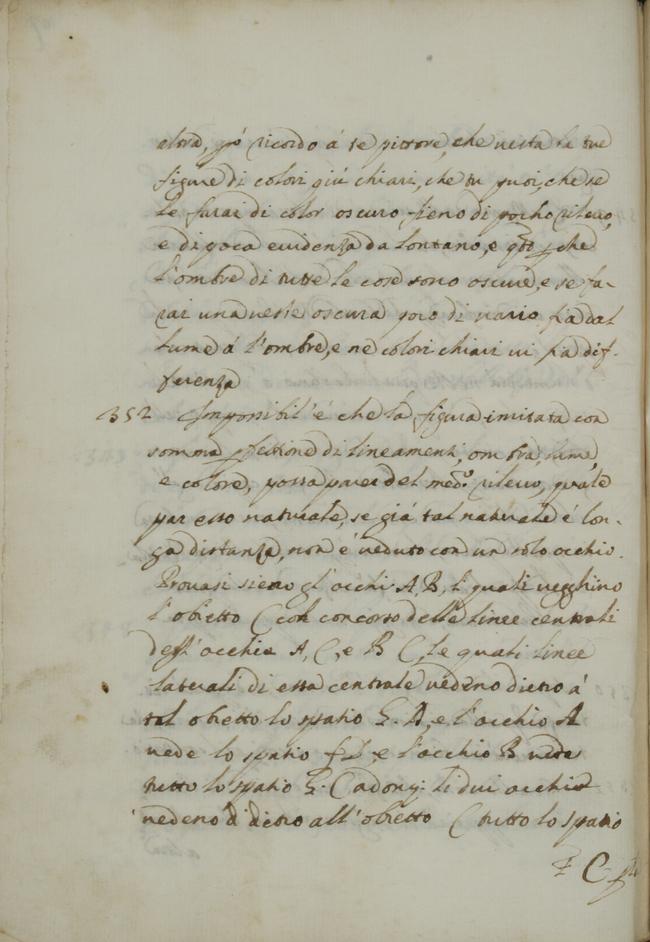 alora, però ricordo á te pittore, che vesta le tue
figure di colori più chiari, che tu puoi, che se
le farai di color oscuro fieno di pocho rilievo,
e di poca evidenza da lontano, e qsto p che
l'ombre di tutte le cose sono oscure, e se fa-
rai una veste oscura poco di vario fia dal
lume á l'ombre, e ne colori chiari vi fia dif-
ferenza
352 Impossibil' é che la figura imitata con
somma pfettione di lineamenti, ombra, lume,
e colore, possa parer del medo. rilievo, quale
par esso naturale, se giá tal naturale é lon-
ga distanza, non é veduto con un solo occhio.
Provasi sieno gl' occhi A, B, li quali vegghino
l' obietto C col concorso delle linee centrali
dell' occhio A, C, e B C, le quali linee
laterali di essa centrale vedeno dietro á
tal obietto lo spatio G. D, e l'occhio A
vede lo spatio f D, e l'occhio B vede
tutto lo spatio G. C adonq: li dui occhi
vedeno di dietro all' obietto C tutto lo spatio
F C